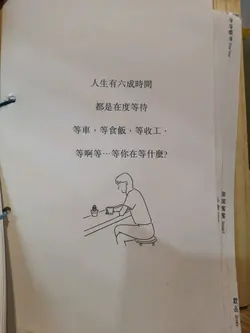 人生有六成時間
都是在度等待
等車，等食飯，等收工．
等啊等…等你在等什麼?